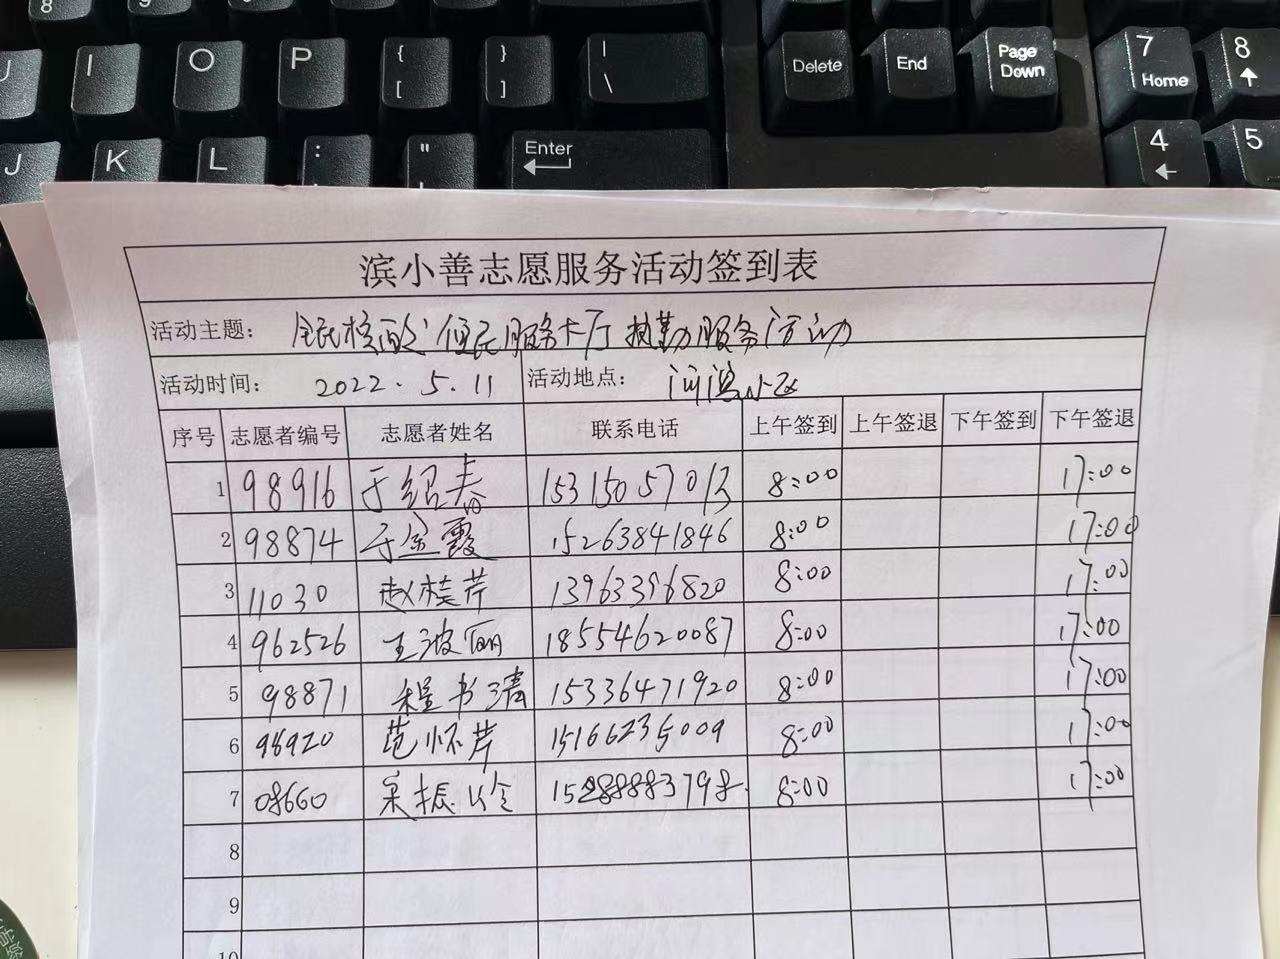 8
7
8
I
O
P
{
[
}
]
|
\
Delete
End
Page
Down
7
Home
8
J
K
L
:
"
Enter
4
5
滨小善志愿服务活动签到表
活动主题: 全民核酸 便民服务卡厅执勤服务活动
活动时间: 2022.5.11 活动地点: 河滨小区
序号 志愿者编号 志愿者姓名 联系电话 上午签到 上午签退 下午签到 下午签退
1 98916 于绍春 15315057013 8:00 17:00
2 98874 于金霞 15263841846 8:00 17:00
3 11030 赵桂芹 13963396820 8:00 17:00
4 962526 王波丽 18554620087 8:00 17:00
5 98871 程书清 15336471920 8:00 17:00
6 98920 范怀芹 15166235009 8:00 17:00
7 08660 振 8:00 17:00
8
9
10